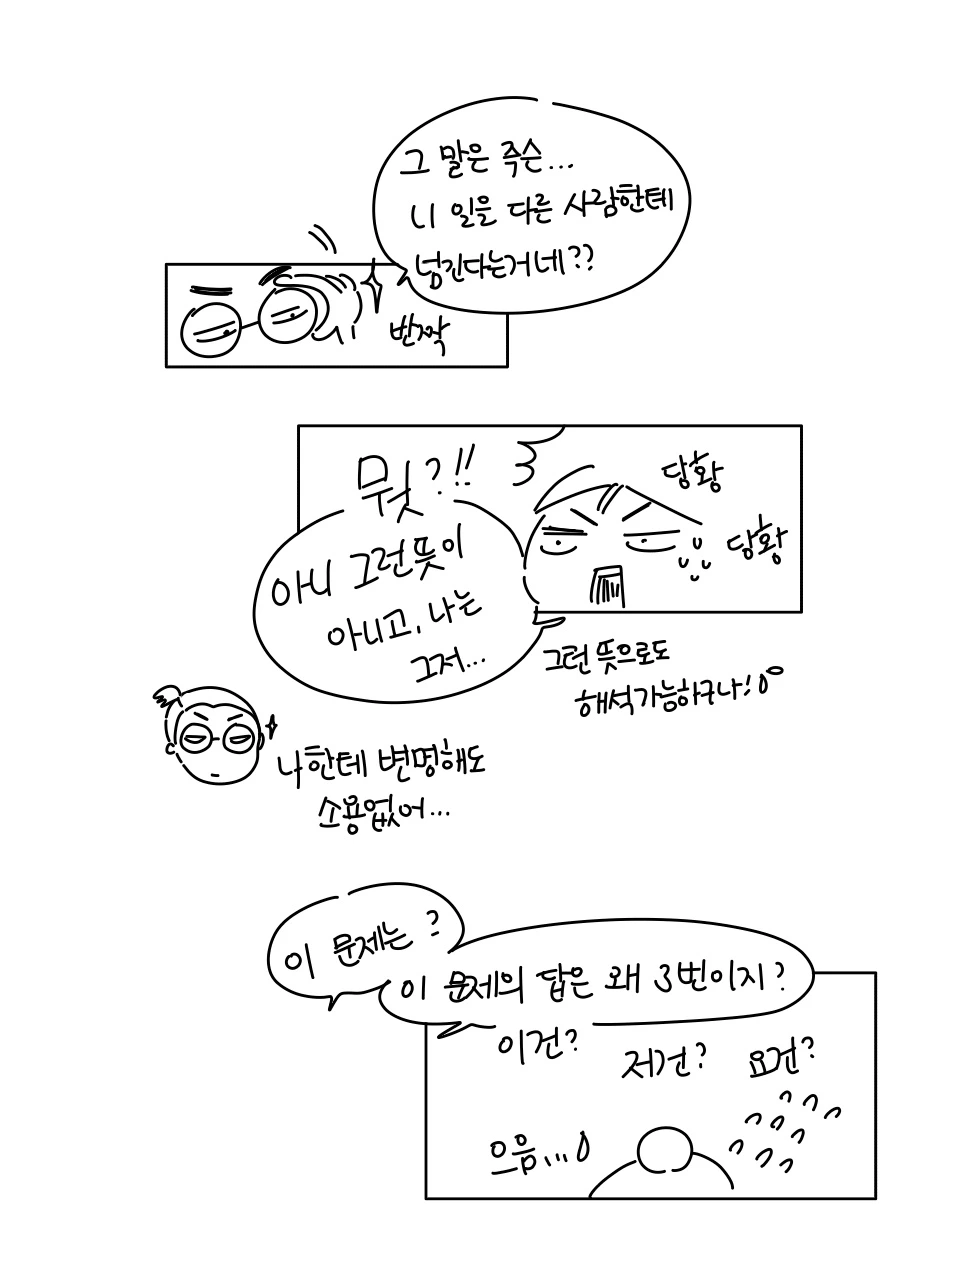 그 말은 즉슨...
니 일을 다른 사람한테
넘긴다는거네??
반짝
뭣?!!
당황
당황
아니 그런뜻이
아니고, 나는
그저...
그런 뜻으로도
해석가능하구나!
나한테 변명해도
소용없어...
이 문제는?
이 문제의 답은 왜 3번이지?
이건?
저건?
요건?
으음...